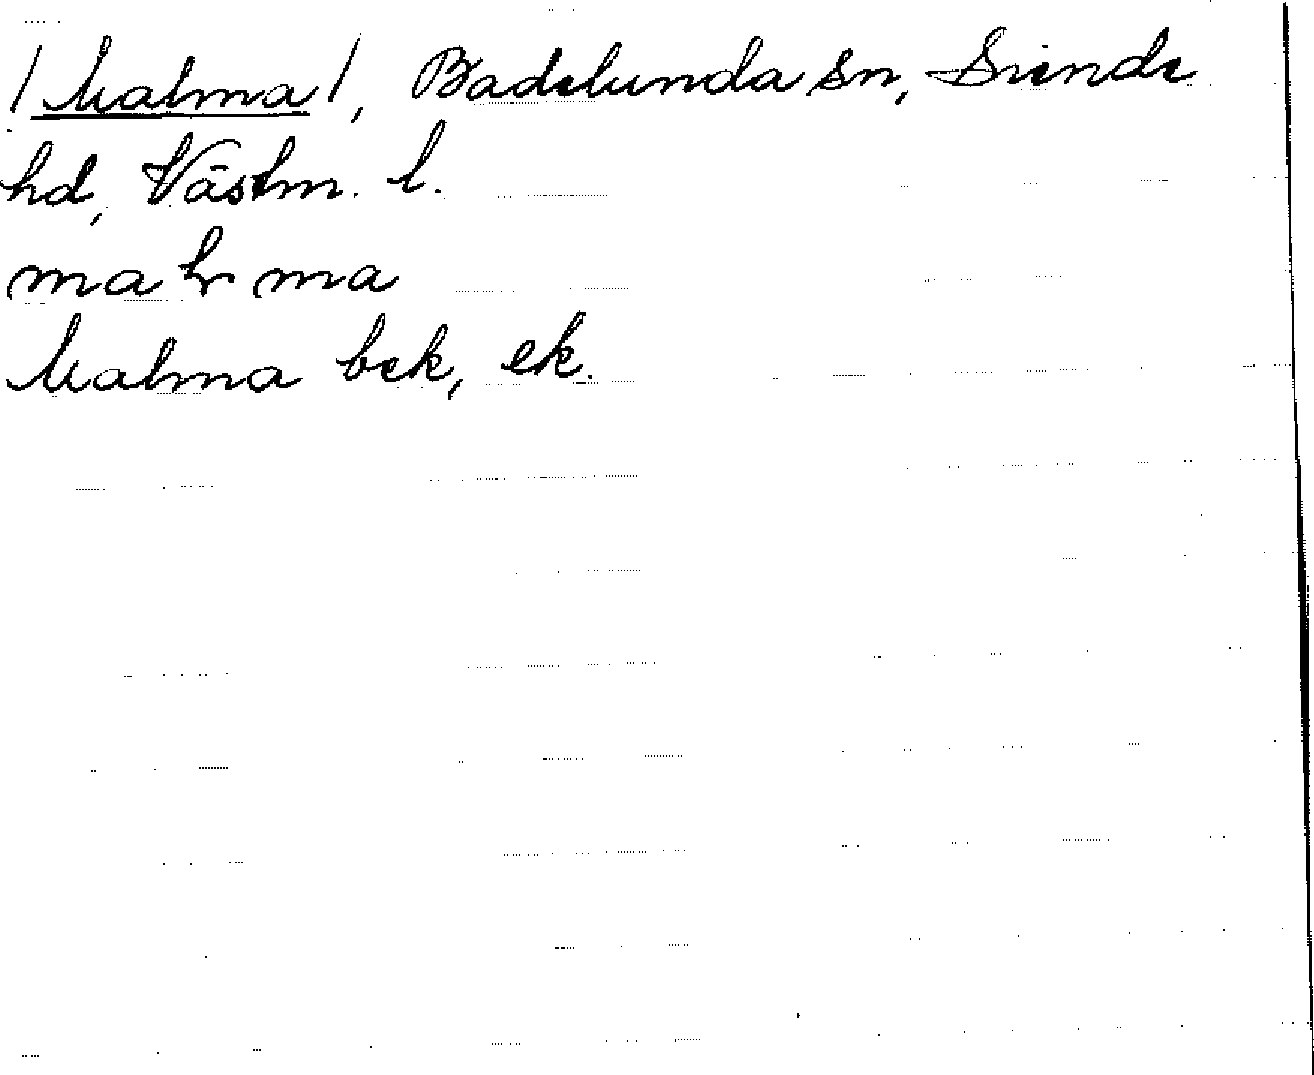 /Malma/, Badelunda sn, Siende
hd, Västm. l.
malma
Malma bek, ek.